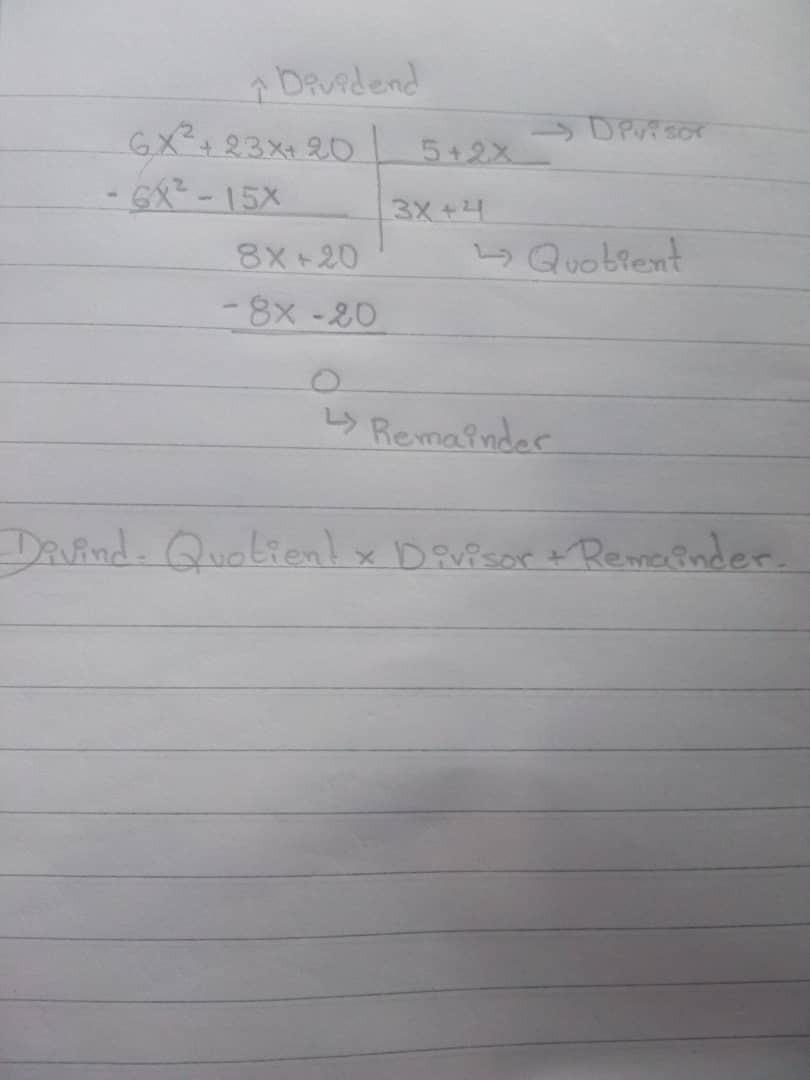 ↑ Dividend
6x² + 23x + 20 | 5 + 2x → Divisor
- 6x² - 15x | 3x + 4
8x + 20 ↳ Quotient
- 8x - 20
0
↳ Remainder
Divind = Quotient × Divisor + Remainder.